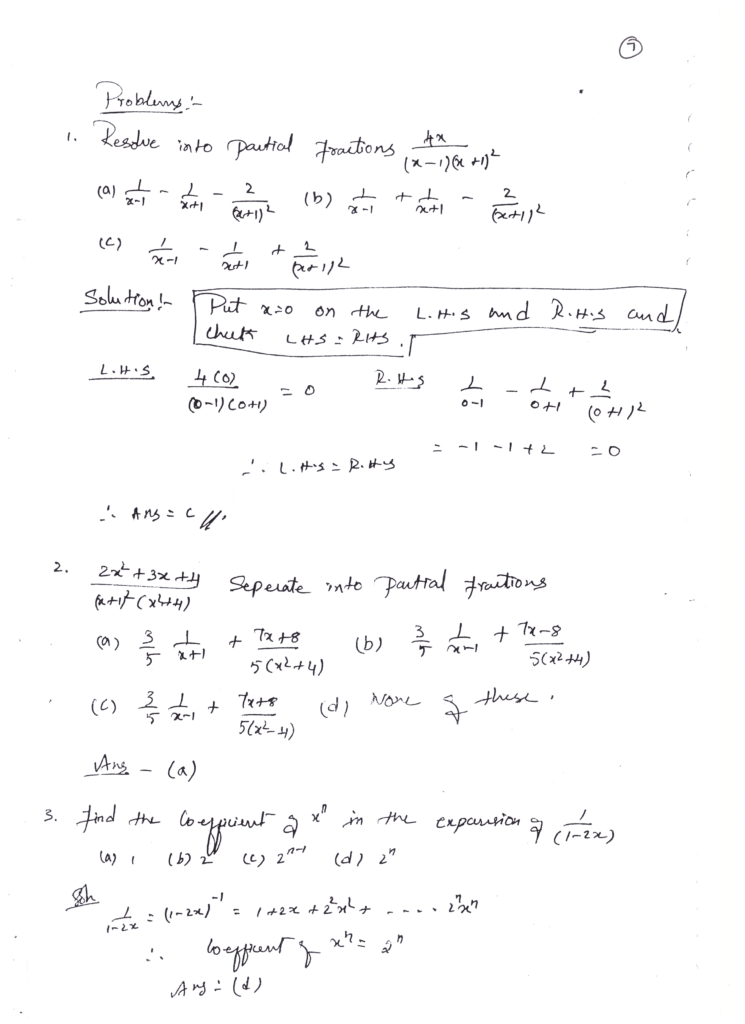 7
Problems :-
1. Resolve into partial fractions 4x / (x-1)(x+1)²
(a) 1/(x-1) - 1/(x+1) - 2/(x+1)² (b) 1/(x-1) + 1/(x+1) - 2/(x+1)²
(c) 1/(x-1) - 1/(x+1) + 2/(x+1)²
Solution :- Put x=0 on the L.H.S and R.H.S and
check LHS = RHS.
L.H.S. 4(0) / (0-1)(0+1) = 0 R.H.S 1/(0-1) - 1/(0+1) + 2/(0+1)²
= -1 -1 +2 = 0
∴ L.H.S = R.H.S
∴ Ans = c //.
2. 2x²+3x+4 / (x+1)²(x²+4) Seperate into partial fractions
(a) 3/5 1/(x+1) + 7x+8 / 5(x²+4) (b) 3/5 1/(x-1) + 7x-8 / 5(x²+4)
(c) 3/5 1/(x-1) + 7x+8 / 5(x²-4) (d) None of these.
Ans - (a)
3. find the coefficient of xⁿ in the expansion of 1/(1-2x)
(a) 1 (b) 2 (c) 2ⁿ⁻¹ (d) 2ⁿ
Soln
1/(1-2x) = (1-2x)⁻¹ = 1+2x+2²x²+ .... 2ⁿxⁿ
∴ coefficient of xⁿ = 2ⁿ
Ans : (d)